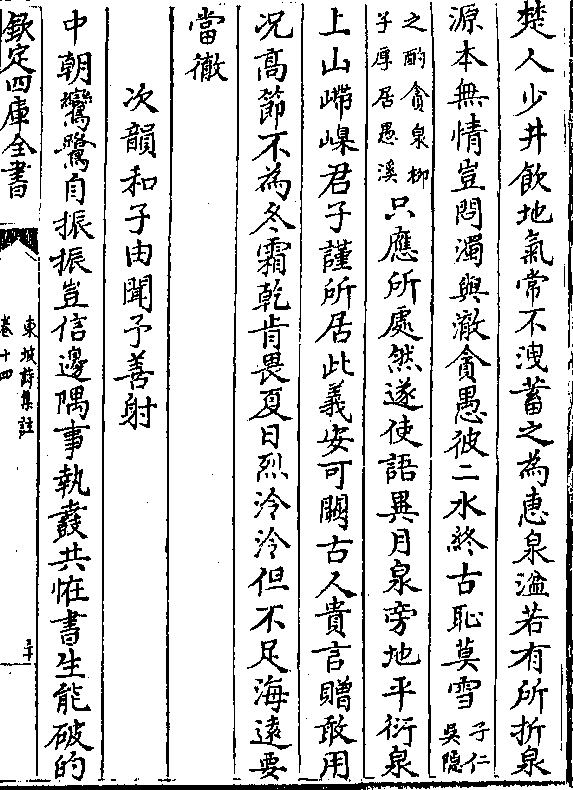 楚人少井飲地氣常不洩蓄之為惠泉溢若有所折泉
源本無情豈問濁與澈貪愚彼二水終古恥莫雪
子仁
吳隱
之酌貪泉柳
子厚居愚溪
只應所處然遂使語異月泉旁地平衍泉
上山嵽嵲君子謹所居此義安可闕古人貴言贈敢用
况高節不為冬霜乾肯畏夏日烈泠泠但不足海遠要
當徹
次韻和子由聞予善射
中朝鸞鷺自振振豈信邊隅事執鼖共恠書生能破的
欽定四庫全書
東坡詩集註
卷十四